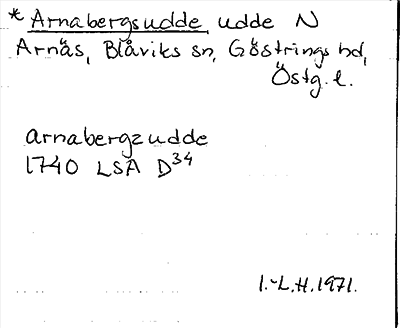 * Arnabergsudde, udde N
Arnäs, Blåviks sn, Göstrings hd,
Östg. l.
arnabergzudde
1740 LSA D34
I.-L.H. 1971.